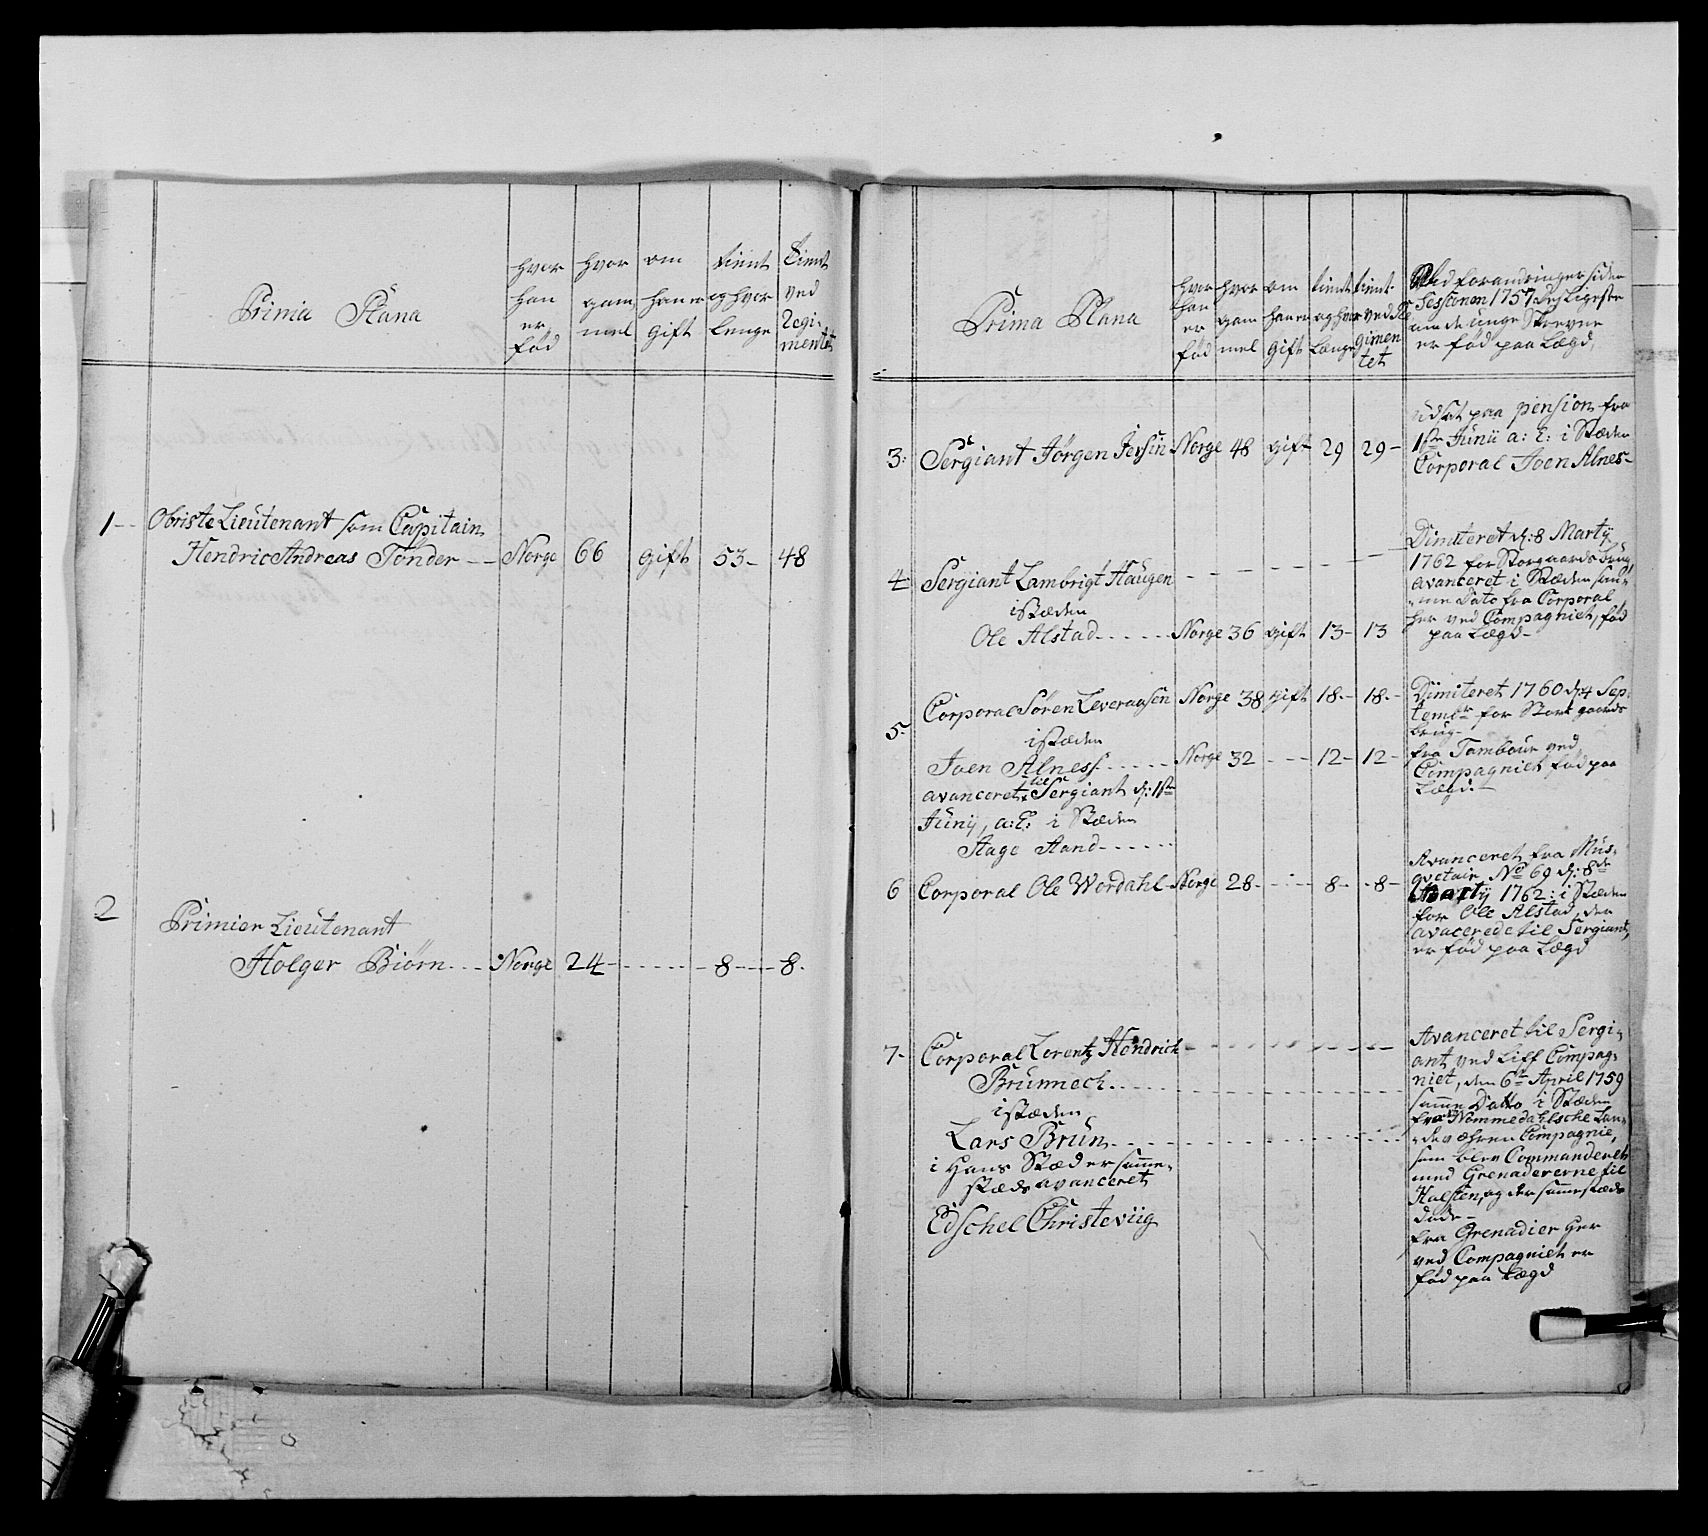 Prima Plana
hvor
han
er
fød
hvor
gam
mel
om
han er
gift
tient
og hvor
lenge
Tient
ved
Regi-
mentet
1-- Obriste Lieutenant som Capitain
Hendric Andreas Tønder -- Norge 66 gift 53- 48
2 Primier Lieutenant
Holger Biørn --- Norge 24 - - - - - 8 - - - 8.
Prima Plana
hvor
han
er
fød
hvor
gam
mel
om
han er
gift
tient
og hvor
Længe
tient
ved Re
gimen
tet
Ved forandringer siden
Sessionen 1757 desligeste
om de unge Skrevne
er fød paa Lægd,
3: Sergiant Jørgen Jersin Norge 48 gift 29 29-
udsat paa pension fra
1ste Junii a: C: i Stæden
Corporal Joen Alnes-
4 Sergiant Lambrigt Haugen
istæden
Ole Alstad - - - - - Norge 36 gift 13- 13
Dimiteret d: 8 Martÿ
1762 for Storgaards brug
avanceret i Stæden sam-
me Dato fra Corporal
her ved Compagniet, fød
paa Lægd-
5. Corporal Søren Leveraasen Norge 38 gift 18.- 18.-
istæden
Joen Alness - - - - - Norge 32 - - - 12- 12-
avanceret til Sergiant d: 1ste
Junij, a: C: i Stæden
Aage Aand - - - - - -
Dimiteret 1760 d: 4 Sep-
tembr for Stor gaards
brug-
fra Tambour ved
Compagniet fød paa
Lægd.-
6 Corporal Ole Wordahl - Norge 28 - - - - 8- - 8-
Avanceret fra Mus-
qvetair No 69 d: 8de
Martÿ 1762: i Stæden
for Ole Alstad, der
avacerede til Sergiant,
er fød paa Lægd
7- Corporal Lorentz Hendrich
Brunnech - - - - -
istæden
Lars Brun - - - -
i Hans Stæd er samme-
stæds avanceret
Edschel Christeviig
Avanceret til Sergi-
ant, ved Liff Compag-
niet, den 6te April 1759
samme Datto i Stæden
fra Nommedahlsche Lan-
deværen Compagnie,
som blev Commanderet
med Grenadererne til
Holsten, og der sammestæds
døde-
fra Grenadier her
ved Compagniet er
fød paa Lægd